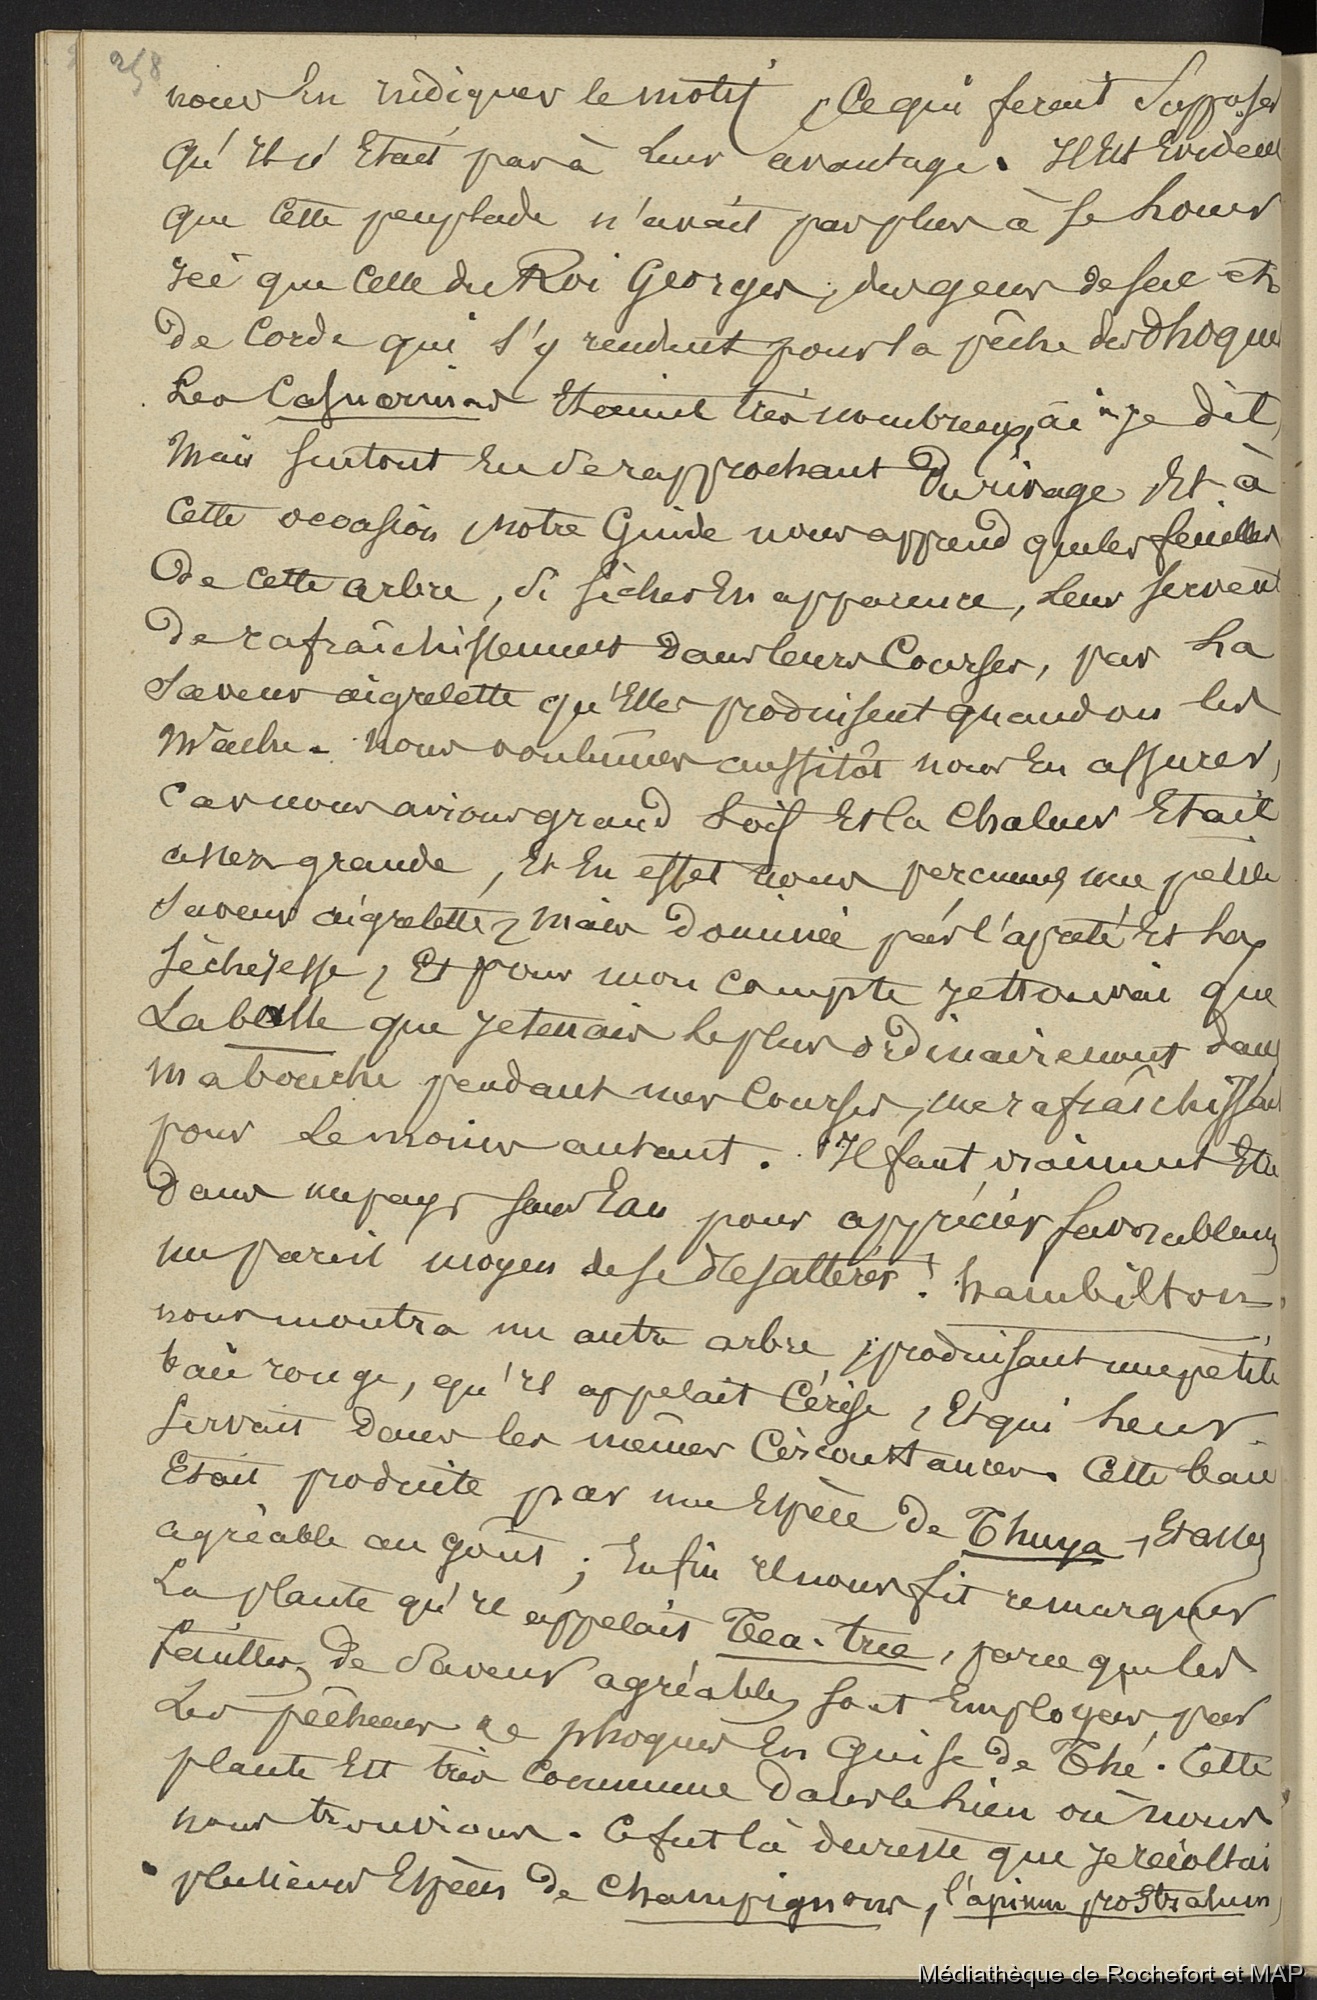 258
nous En indiquer le motif, Ce qui ferait Supposer
qu'il n'Etait pas à leur avantage. Il Est Evident
que cette peuplade n'avait pas plus à se louer
ici que Celle du Roi Georges, des gens de sac et
de Corde qui s'y rendent pour la pêche des Phoques
Les Casuarinas Etaient très nombreux, ai-je dit,
Mais surtout En se rapprochant Du rivage Et à
Cette occasion Notre Guide nous apprend que les feuilles
De cette arbre, si sèches En apparence, leur servent
De rafraîchissements Dans leurs Courses, par La
Saveur aigrelette qu'Elles produisent quand on les
Mâche. Nous voulûmes aussitôt nous En assurer,
Car nous avions grand soif Et la Chaleur Etait
assez grande, Et En effet nous perçumes une petite
Saveur aigrelette, Mais Dominée par l'apreté Et La
Sécheresse, Et pour mon Compte je trouvai que
La balle que je tenais le plus ordinairement dans
Ma bouche pendant mes Courses, me rafraîchissait
pour Le moins autant. Il faut vraiment Etre
Dans un pays sans Eau pour apprécier favorablement
un pareil moyen de se désaltérer! hambilton
nous montra un autre arbre, produisant une petite
baie rouge, qu'il appelait Cérise, Et qui leur
Servait Dans les mêmes Circonstances. Cette baie
Etait produite par une Espèce De Thuya, Et assez
agréable au goût; Enfin il nous fit remarquer
La plante qu'il appelait Tea-tree, parce que les
feuilles, De Saveur agréable, sont Employées par
Les pêcheurs de phoques En Guise De Thé. Cette
plante Est très Commune Dans le lieu où Nous
nous trouvions. Ce fut là du reste que je récoltai
plusieurs Espèces De Champignons, l'apium prostratum,
Médiathèque de Rochefort et MAP